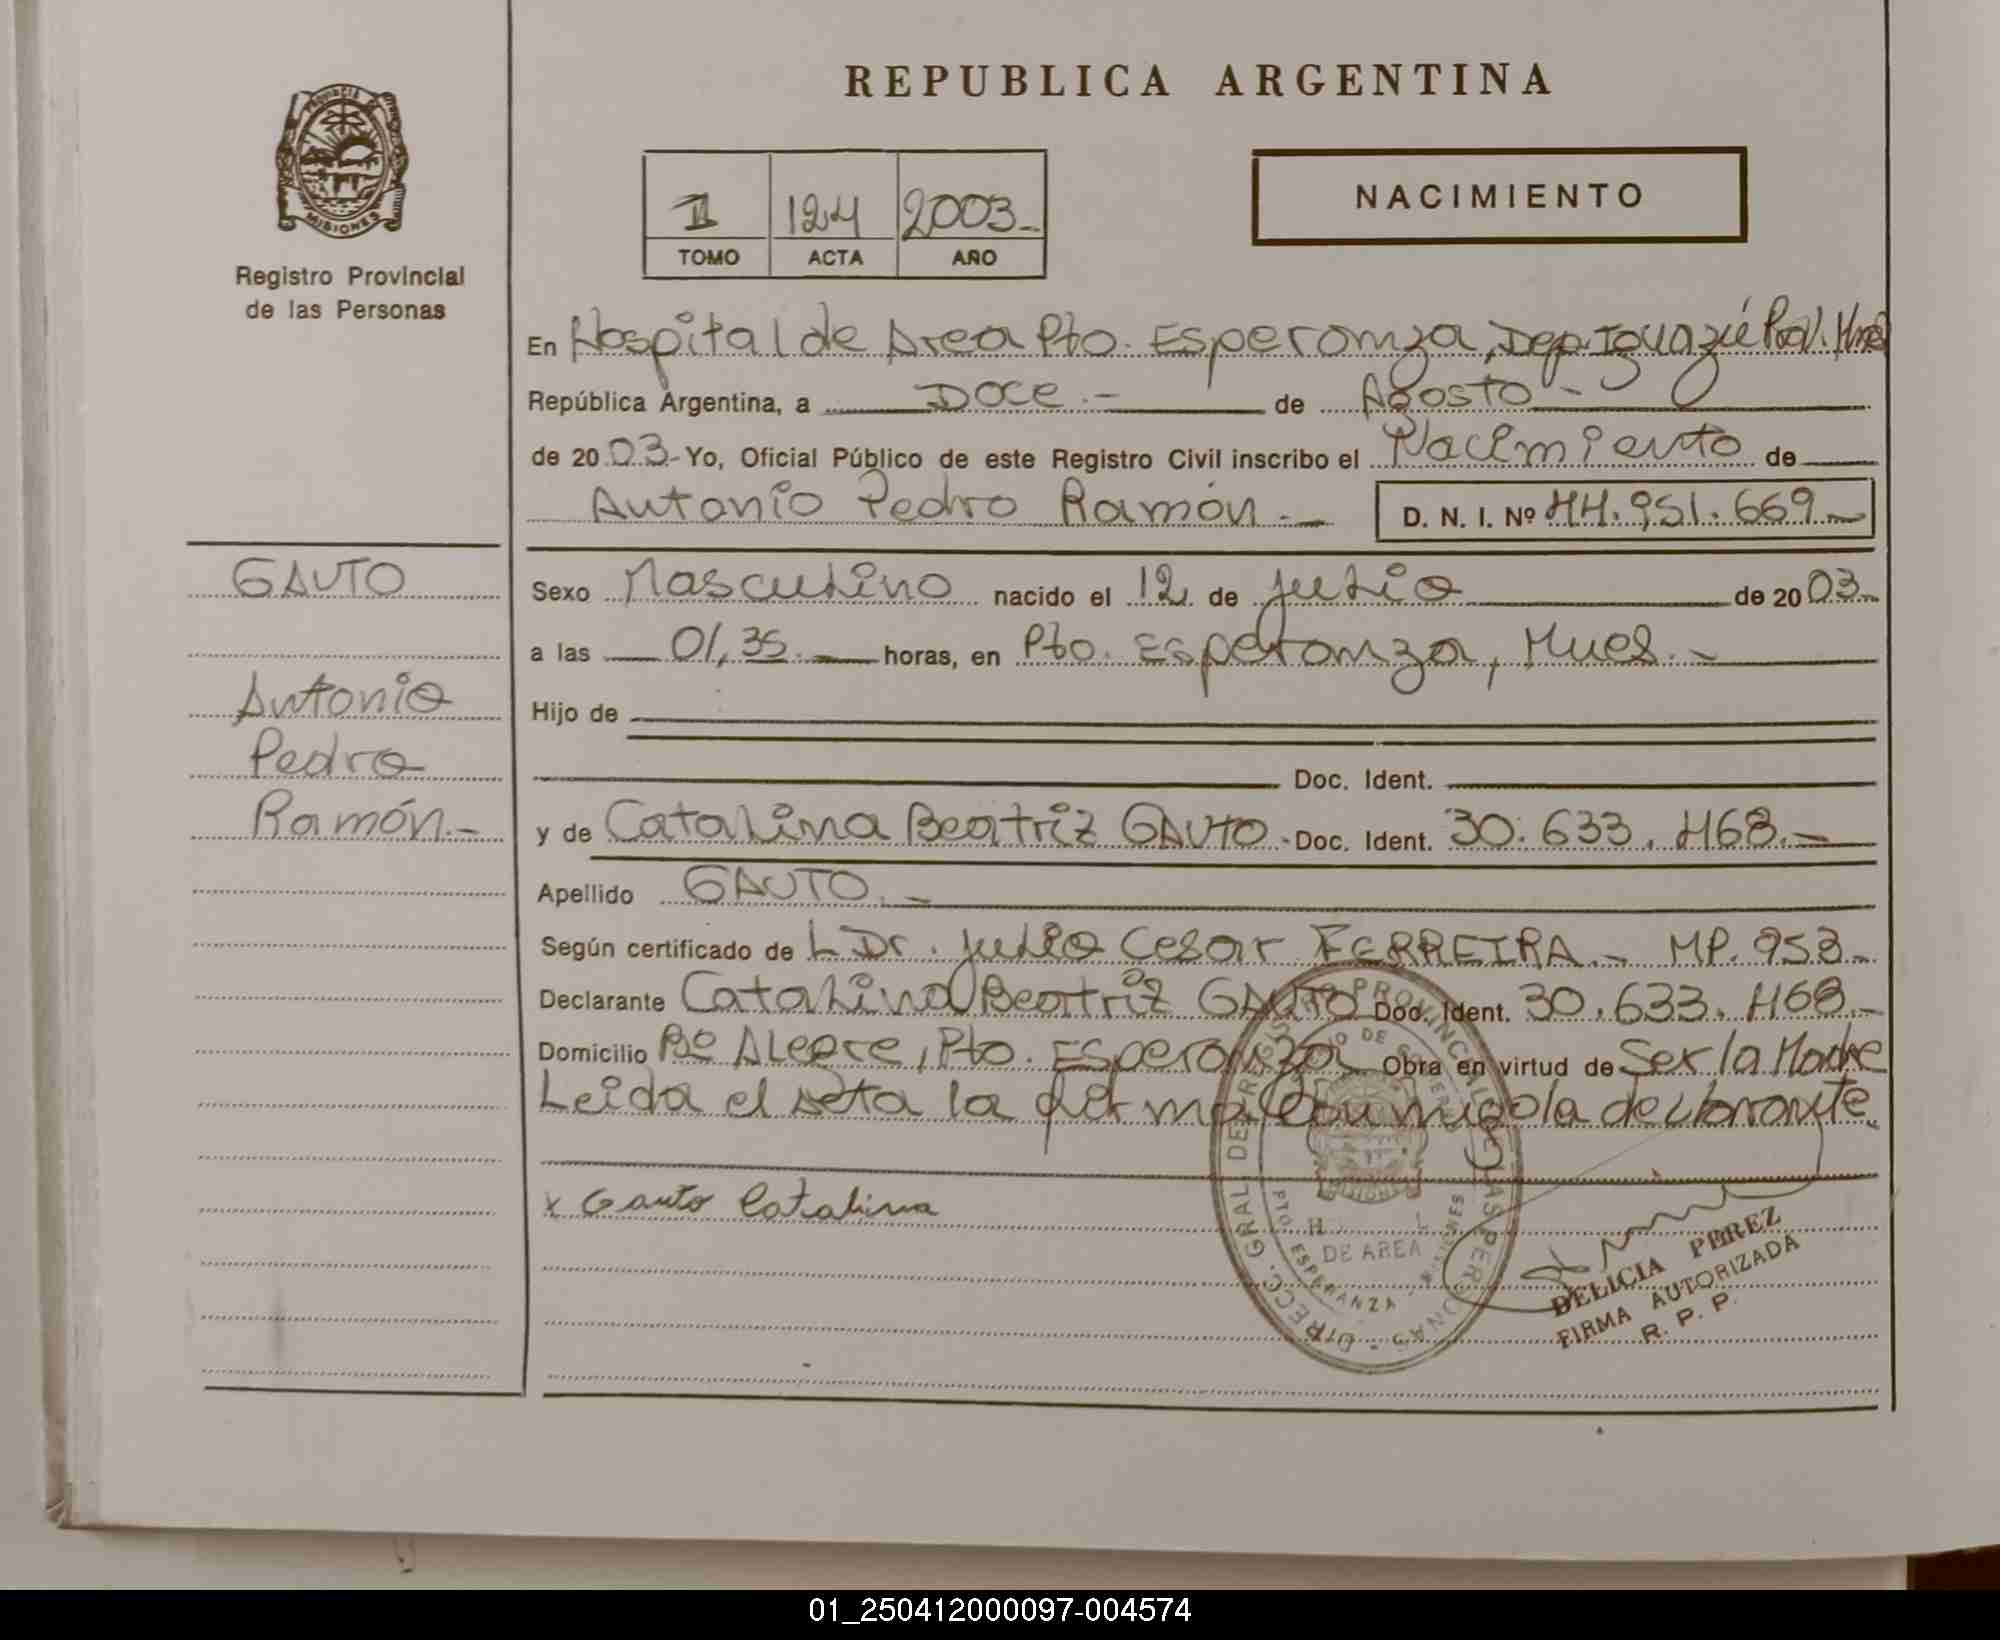 REPUBLICA ARGENTINA
PROVINCIA DE
MISIONES
Registro Provincial
de las Personas
1 124 2003-
TOMO ACTA AÑO
NACIMIENTO
En Hospital de Area Pto. Esperanza, Dep. Iguazú Prov. Mnes
República Argentina, a Doce.- de Agosto-
de 2003- Yo, Oficial Público de este Registro Civil inscribo el Nacimiento de
Antonio Pedro Ramón.- D. N. I. Nº 44.951.669.-
GAUTO
Antonio
Pedro
Ramón.-
Sexo Masculino nacido el 12 de Julio de 2003-
a las 01,35.- horas, en Pto. Esperanza, Mnes.-
Hijo de
Doc. Ident.
y de Catalina Beatriz GAUTO.- Doc. Ident. 30.633.468.-
Apellido GAUTO.-
Según certificado de L Dr. Julio Cesar FERREIRA.- MP. 953-
Declarante Catalina Beatriz GAUTO Doc. Ident. 30.633.468.-
Domicilio Bº Alegre, Pto. Esperanza Obra en virtud de Ser la Madre
Leida el Acta la firma conmigo la declarante
x Gauto Catalina
DIRECC. GRAL. DE REGISTRO PROVINCIAL DE LAS PERSONAS
DE AREA
PTO ESPERANZA, MISIONES
DELICIA PEREZ
FIRMA AUTORIZADA
R. P. P.
01_250412000097-004574